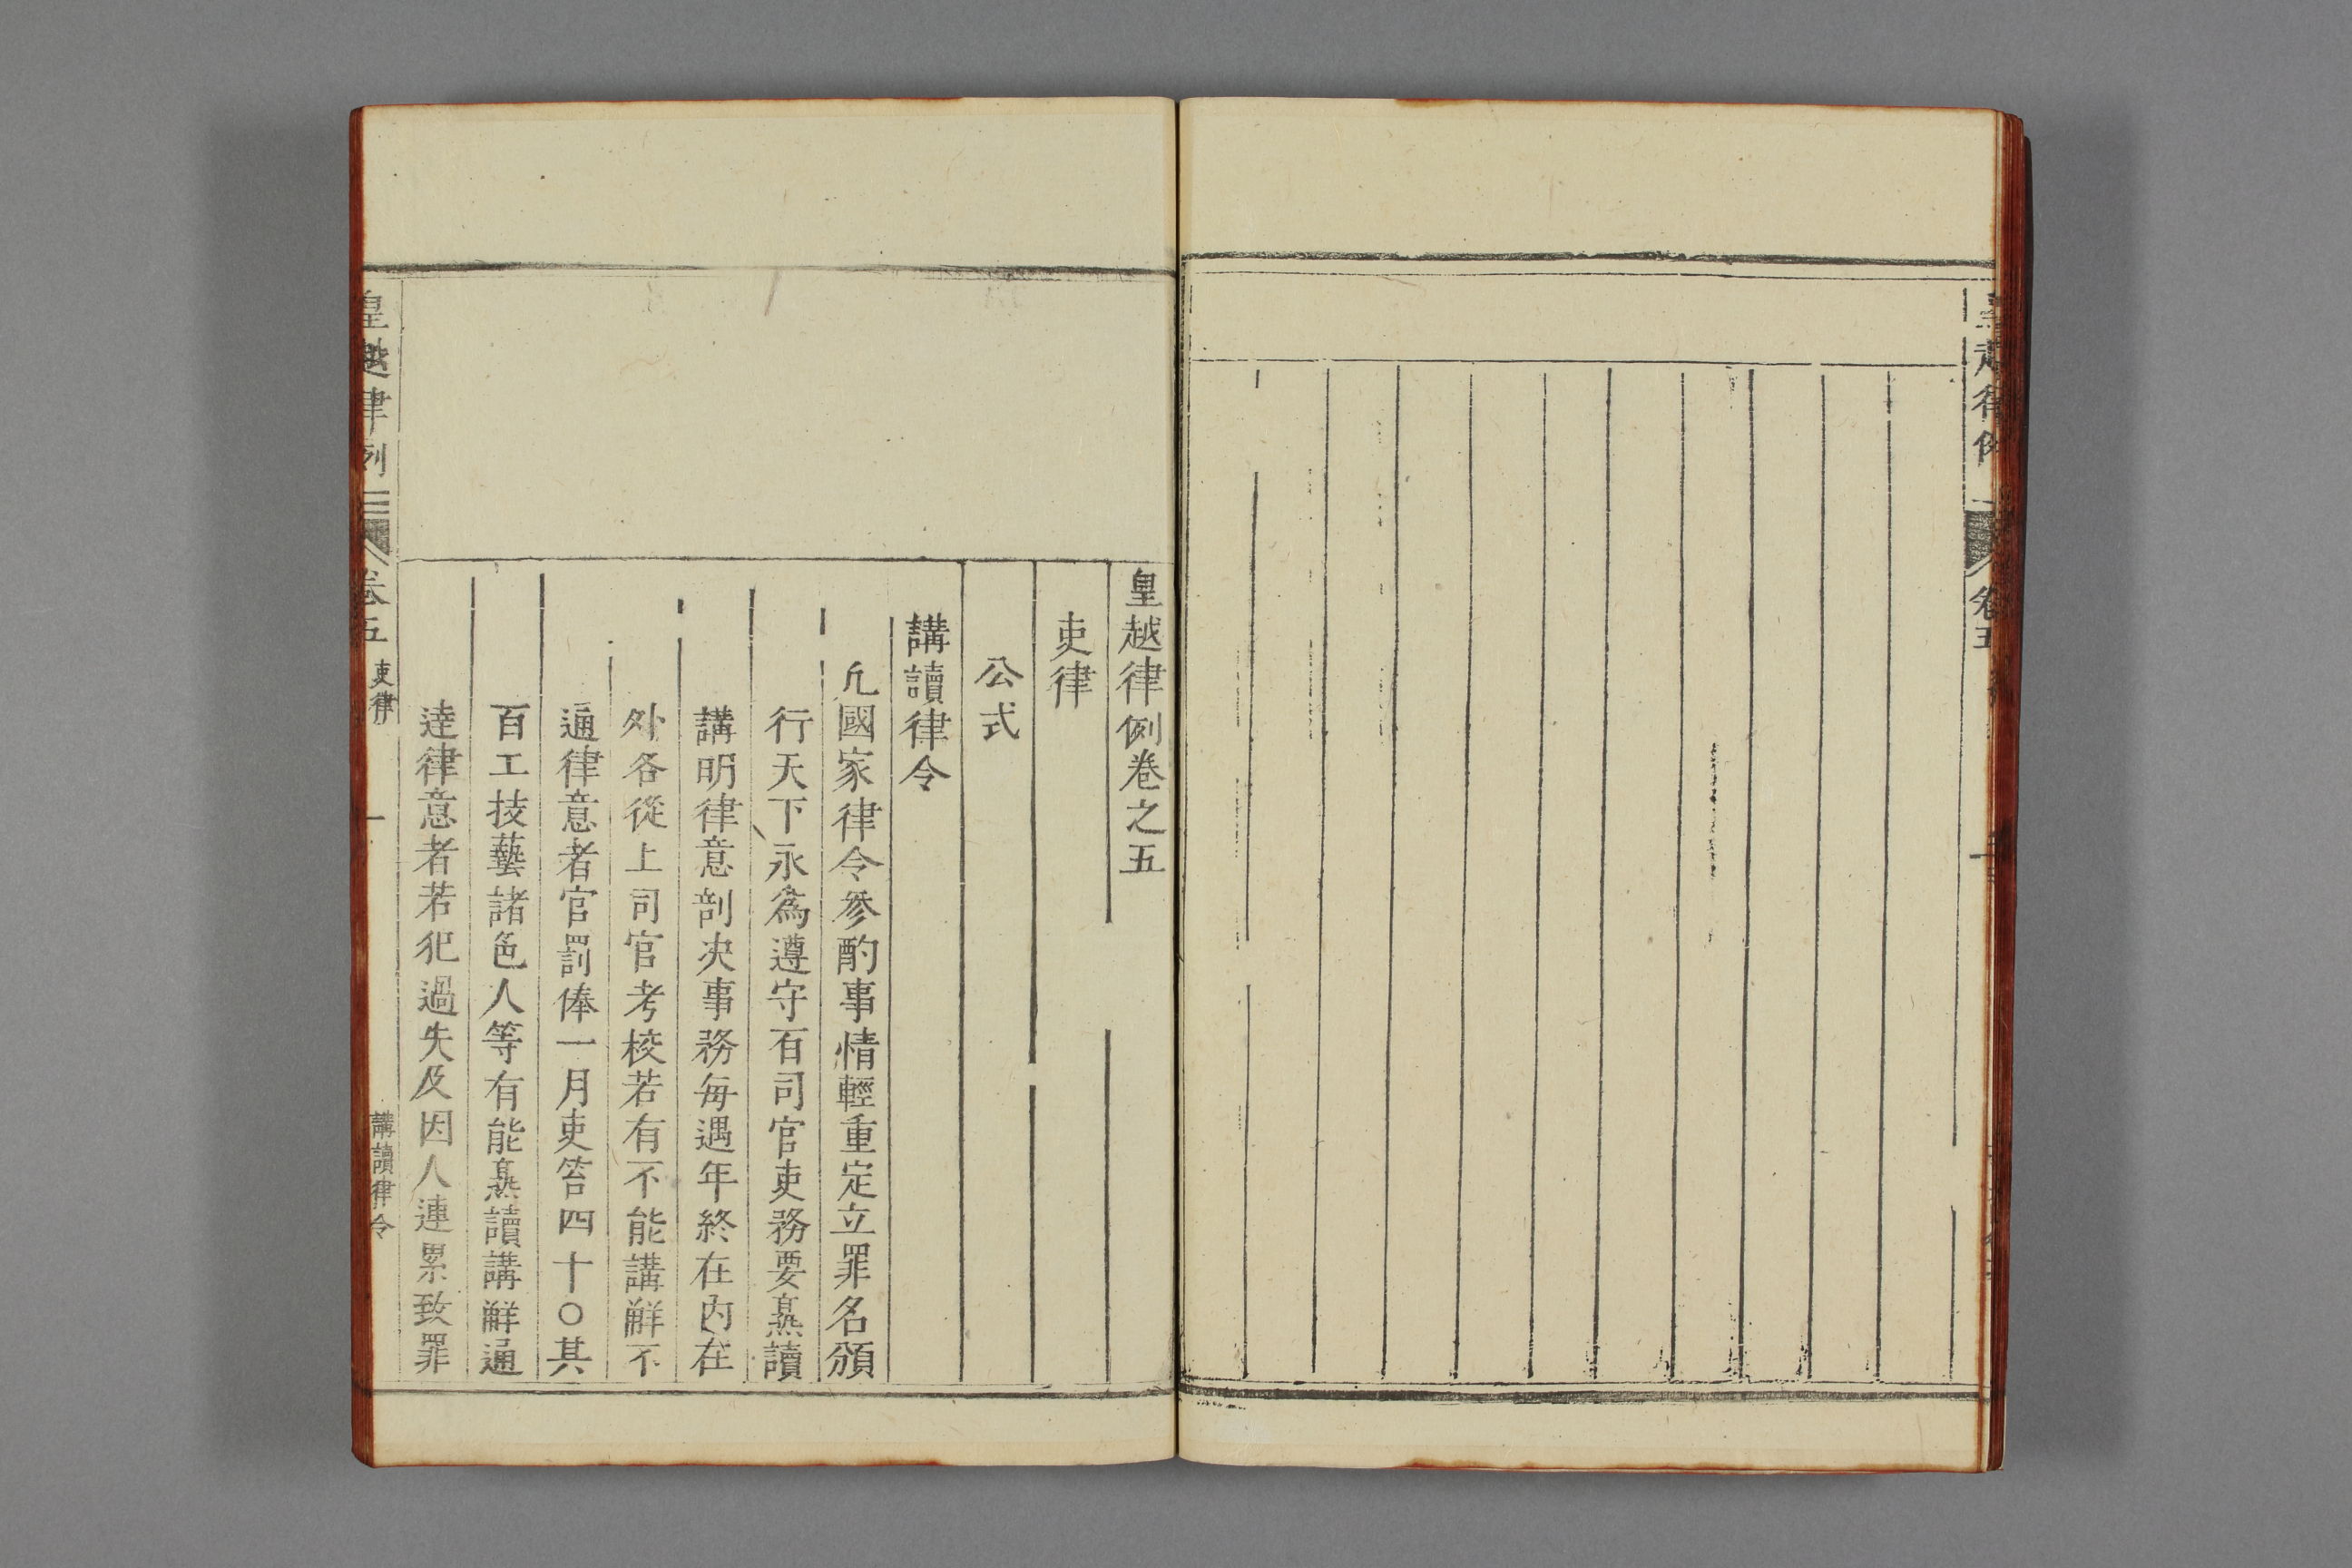 皇越律例卷之五
吏律
公式
講讀律令
凢國家律令參酌事情輕重定立罪名頒
行天下永為遵守百司官吏務要熟讀
講明律意剖决事務每遇年終在內在
外各從上司官考校若有不能講觧不
通律意者官罰俸一月吏笞四十○其
百工技藝諸色人等有能熟讀講觧通
達律意者若犯過失及因人連累致罪
皇越律例 卷五 吏律 一 講讀律令